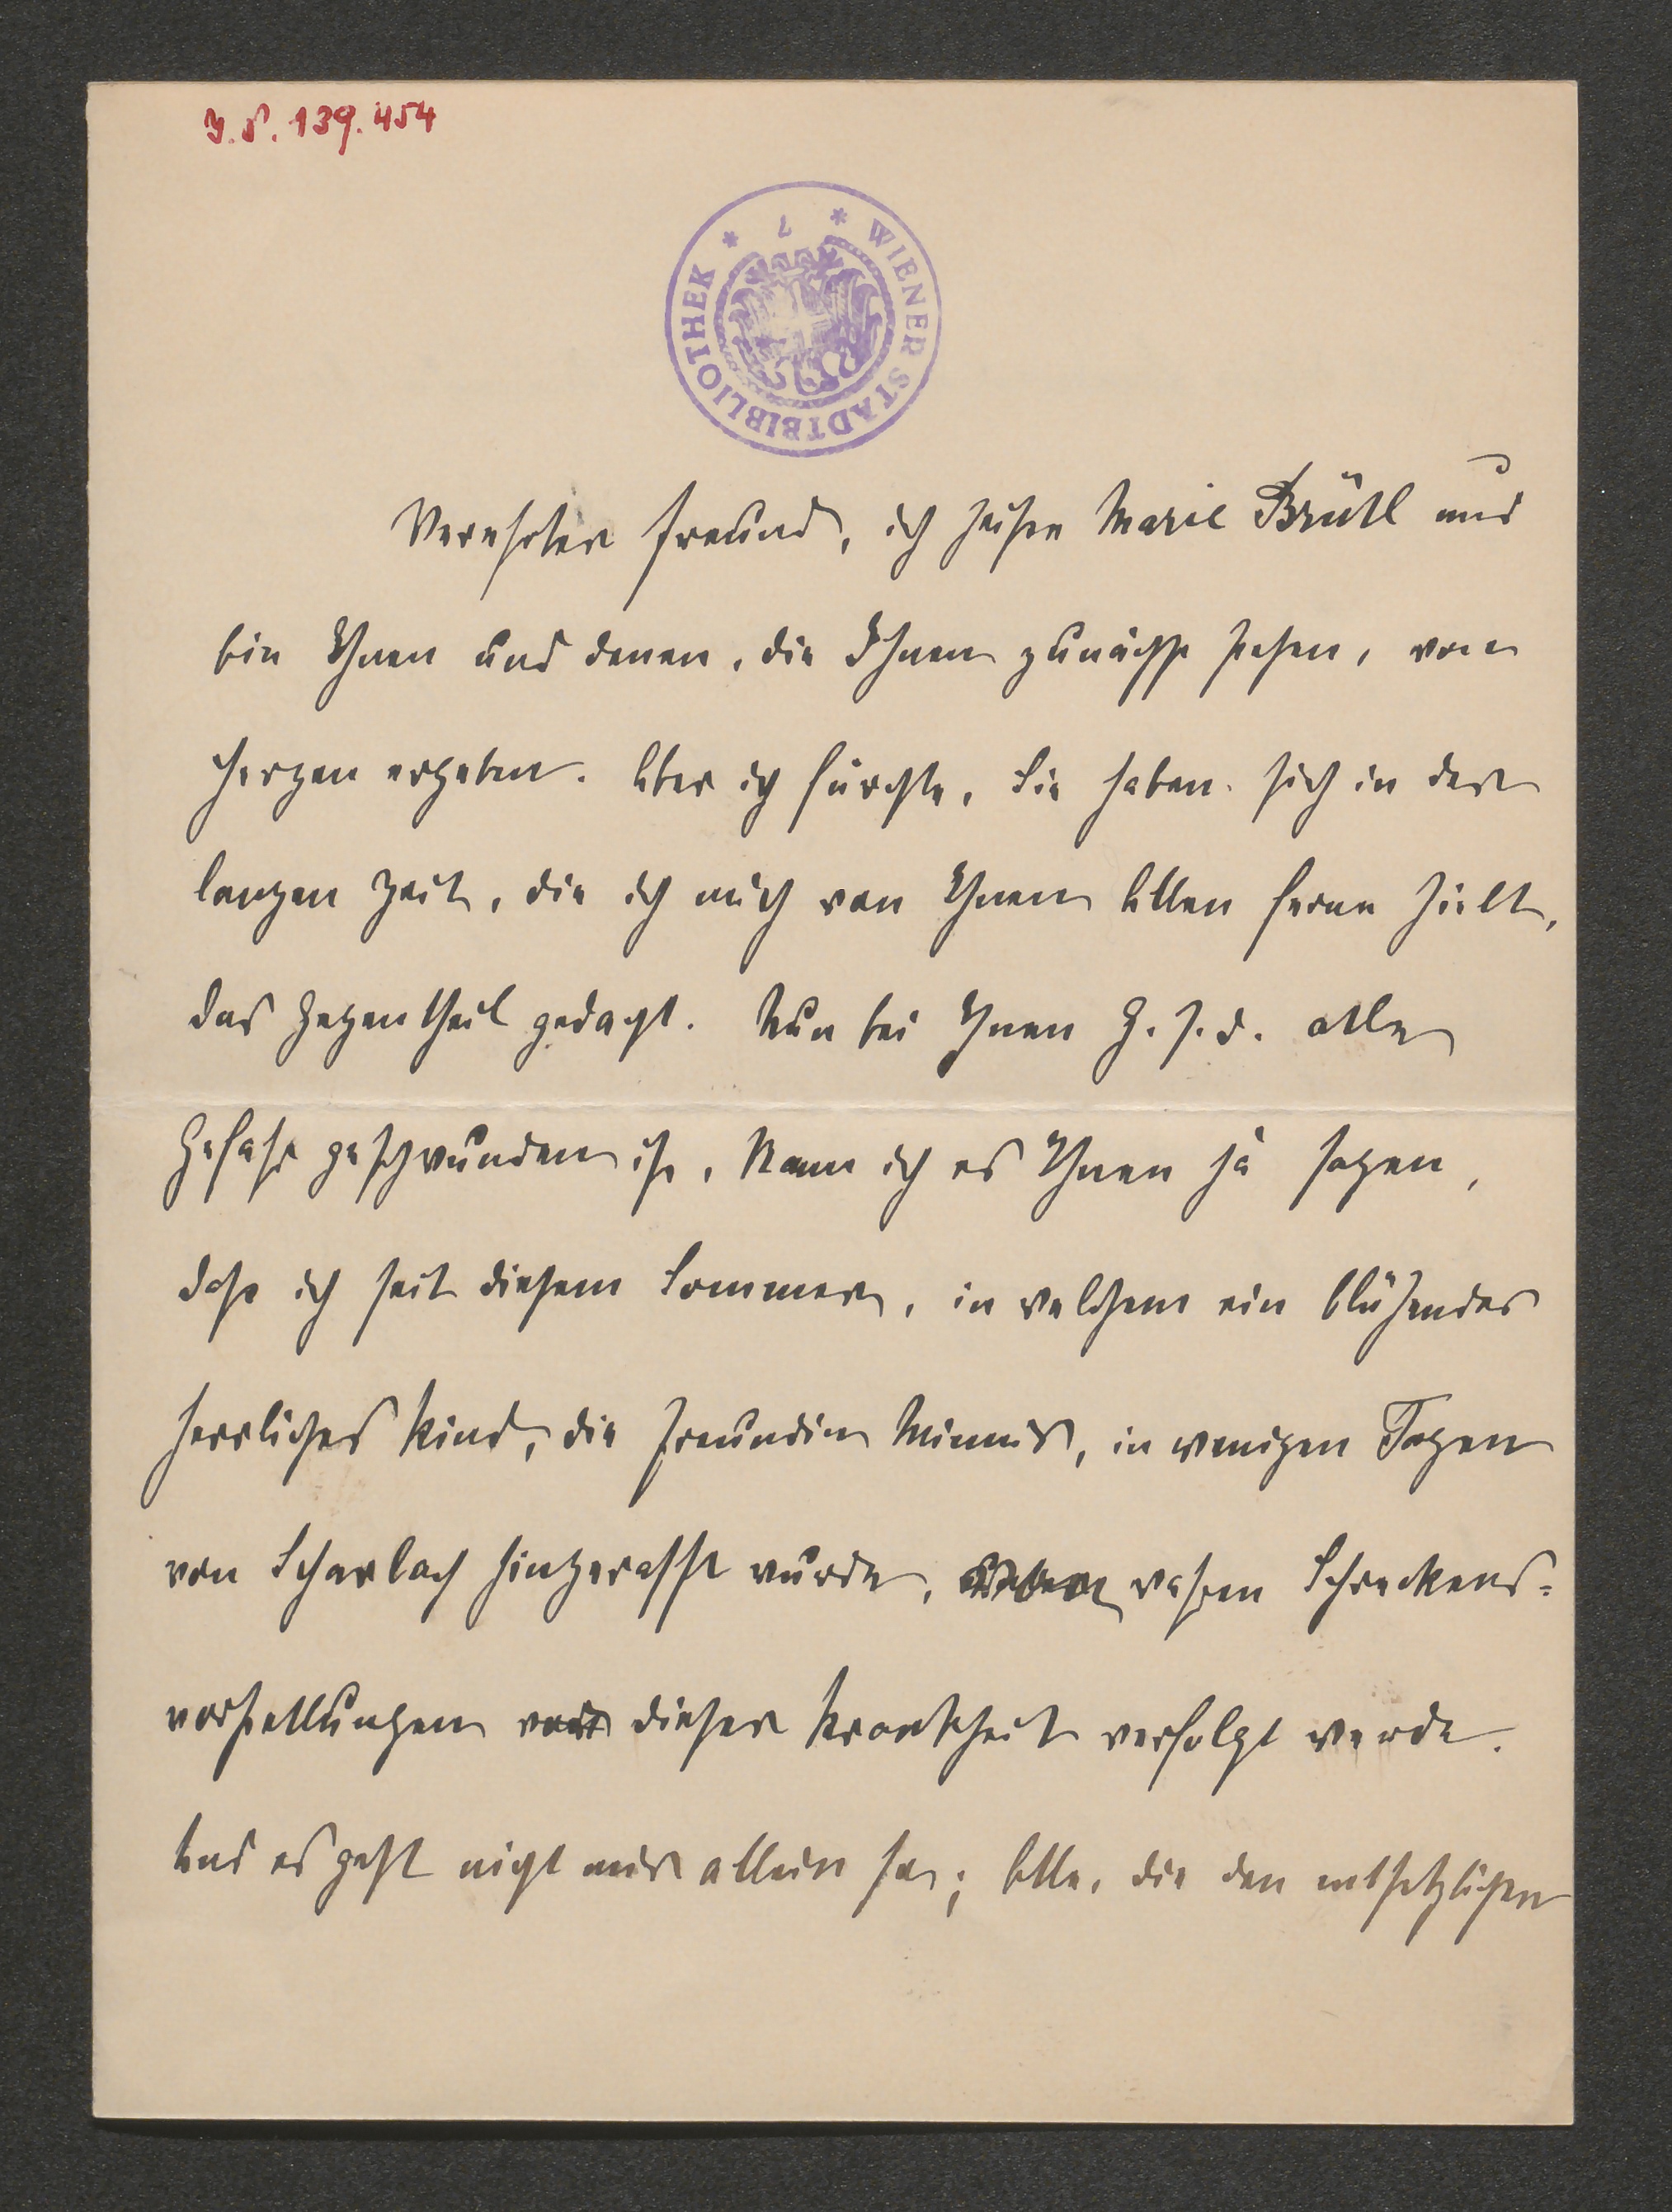 I. N. 139.454
* WIENER STADTBIBLIOTHEK *
Verehrter Freund, ich heiße Marie Brütl und
bin Ihnen und denen, die Ihnen zunächst stehen, von
Herzen ergeben. Aber ich fürchte, Sie haben sich in der
langen Zeit, die ich mich von Ihnen Allen ferne hielt,
das Gegentheil gedacht. Nun bei Ihnen G. s. d. alle
Gefahr geschwunden ist, kann ich es Ihnen ja sagen,
daß ich seit diesem Sommer, in welchem ein blühendes
herrliches Kind, die Freundin Minnis, in wenigen Tagen
von Scharlach hingerafft wurde, wahren Schreckens=
vorstellungen von dieser Krankheit verfolgt werde.
Und es geht nicht mir allein so; Alle, die den entsetzlichen